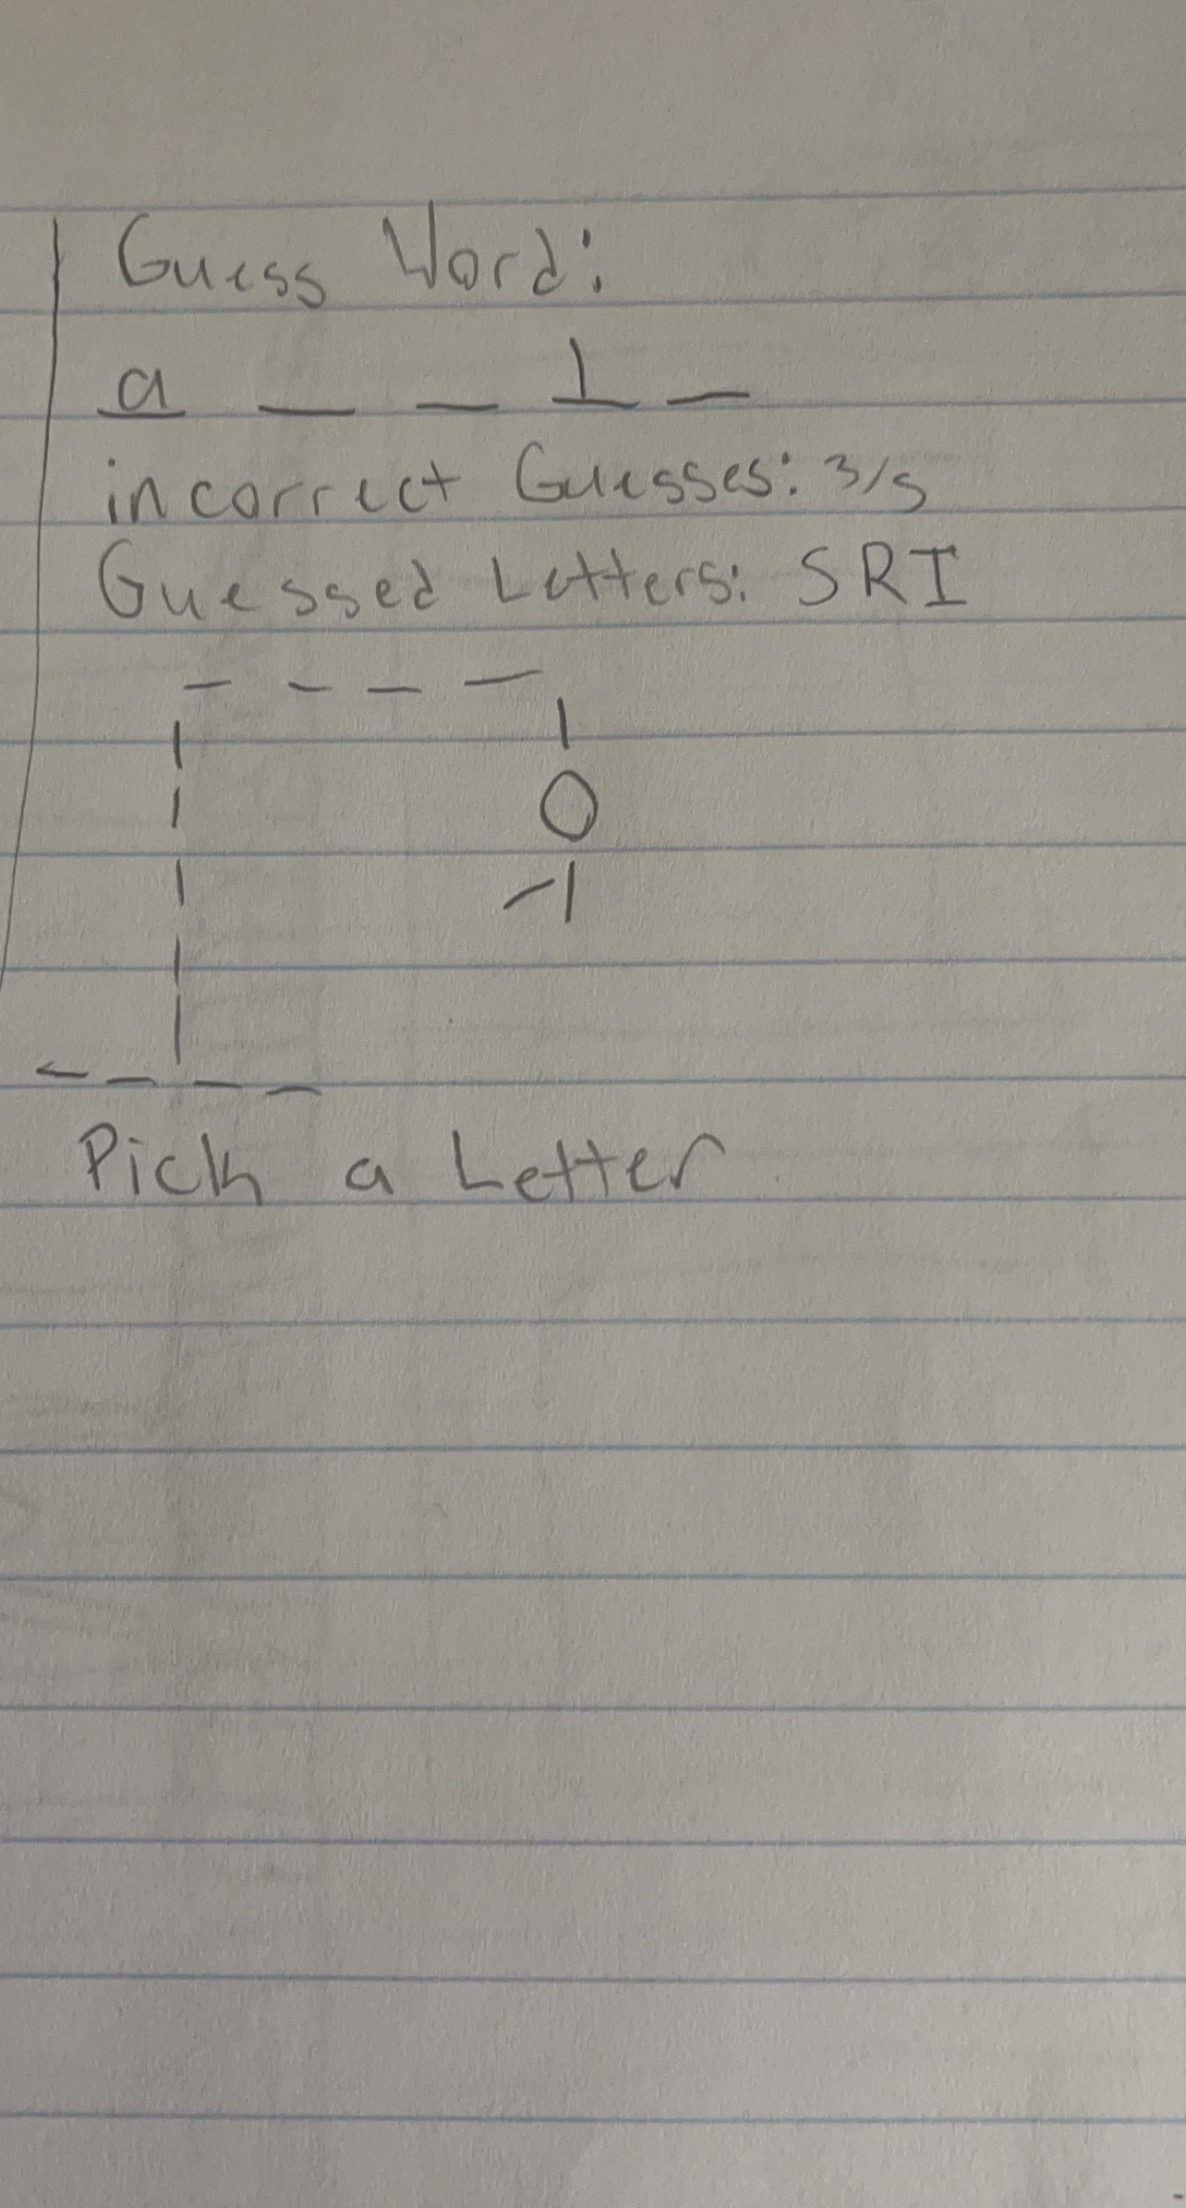 Guess Word:
a _ _ l _
incorrect Guesses: 3/5
Guessed Letters: SRI
Pick a Letter